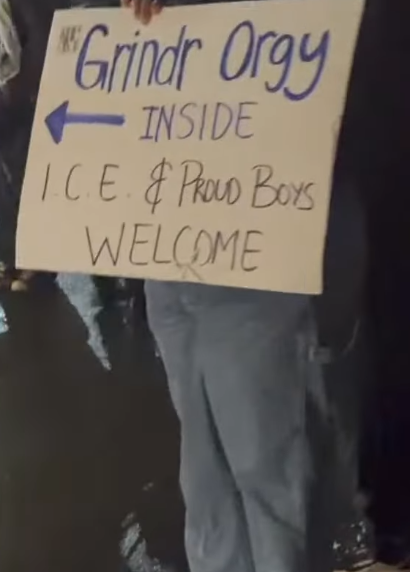 Grindr Orgy
INSIDE
I.C.E. & PROUD BOYS
WELCOME